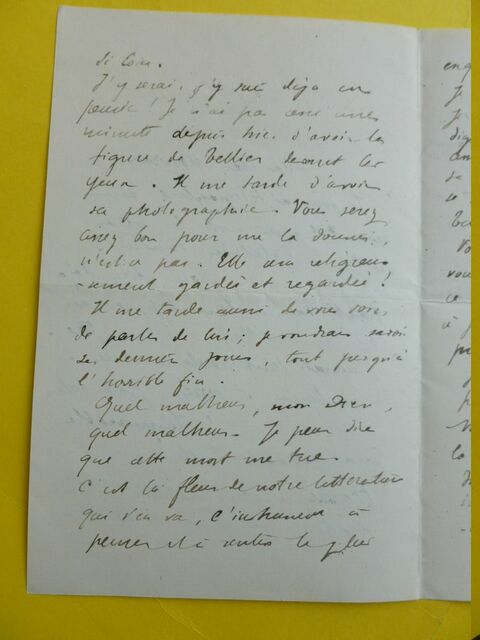 si loin.
J'y serai, j'y suis déjà en
pensée! Je n'ai pas cessé une
minute depuis hier d'avoir la
figure de Tellier devant les
yeux. Il me tarde d'avoir
sa photographie. Vous serez
assez bon pour me la donner,
n'est-ce pas. Elle sera religieu-
-sement gardée et regardée!
Il me tarde aussi de vous voir
de parler de lui; je voudrais savoir
ses derniers jours tout jusqu'à
l'horrible fin.
Quel malheur, mon Dieu,
quel malheur. Je peux dire
que cette mort me tue.
C'est la fleur de notre littérature
qui s'en va, l'instrument à
penser et à sentir le plus